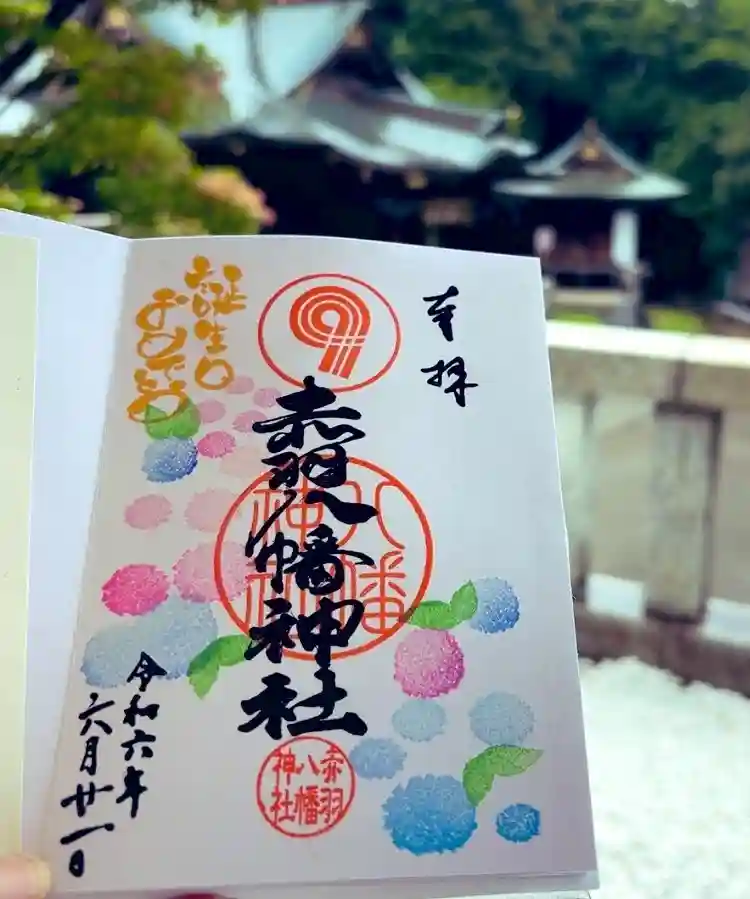 奉拝
赤羽八幡神社
八幡
神社
赤羽
八幡
神社
誕生日
おめでとう
令和六年
六月廿一日